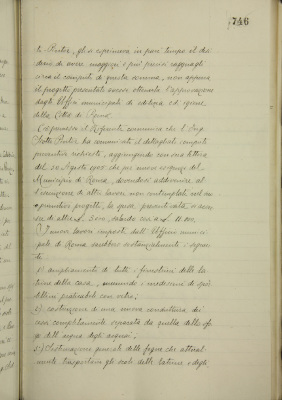 746
te Pinter, gli si esprimeva in pari tempo il desi
derio di avere maggiori e più precisi ragguagli
circa il computo di questa somma, non appena
il progetto presentato avesse ottenuta l'approvazione
dagli Uffici municipali di edilizia ed igiene
della Città di Roma.
il Riferente comunica che l'Ing.
Pinter ha comunicato il dettagliato computo
preventivo richiesto, aggiungendo con una lettera
del 20 Agosto che per nuove esigenze del
Municipio di Roma, dovendosi addivenire al
l'esecuzione di altri lavori non contemplati nel
preventivo progetto, la spesa presenta
di altre L. 3000 salendo così a L. 11.000.
I nuovi lavori imposti dall'Ufficio munici
pale di Roma sarebbero sostanzialmente i seguen
ti
1) ampliamento di tutti i finestrini delle la
trine della casa, munendo i medesimi di spor
tellini praticabili con vetro;
2) costruzione di una nuova conduttura dei
completamente separata da quella dello sfo
go dell'acqua degli acquai;
3) costruzione generale delle fogne che attual
mente trasportano gli scoli delle latrine e degli